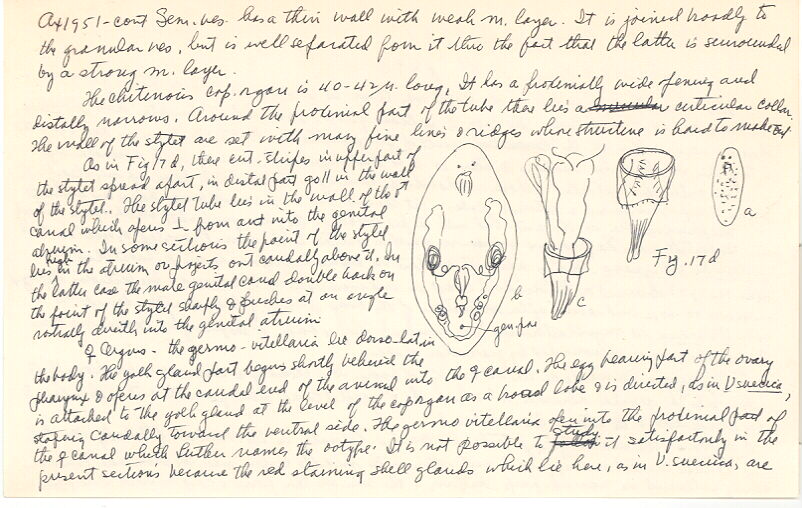 Ax1951-cont Sem. ves. has a thin wall with weak m. layer. It is joined broadly to
the granular ves, but is well separated from it thru the fact that the latter is surrounded
by a strong m. layer.
The chitenois cop. organ is 40-42µ. long, It has a proximally wide opening and
distally narrows. Around the proximal part of the tube there lies a cuticular collar.
The wall of the stylet are set with many fine lines & ridges whose structure is hard to make out.
As in Fig 17d, these cut. stripes in upper part of
the stylet spread apart, in distal part go ll in the wall
of the stylet. The stylet tube lies in the wall of the ♂
canal which opens ⊥ from ant into the genital
atrium. In some sections the point of the stylet
lies high in the atrium or projects out caudally above it. In
the latter case the male genital canal double back on
the point of the stylet sharply & pushes at an angle
rostrally directly into the genital atrium.
♀ Organs - the germo-vitellaria lie dorso-lat in
the body. The yolk gland part begins shortly behind the
pharynx & opens at the caudal end of the animal into the ♀ canal. The egg bearing part of the ovary
is attached to the yolk gland at the level of the cop organ as a broad lobe & is directed, as in V suecica,
caudally toward the ventral side. The germo vitellaria open into the proximal part of
the ♀ canal which Luther names the ootype. It is not possible to study it satisfactorily in the
present sections because the red staining shell glands which lie here, as in V. suecica, are
a
Fig. 17d
b
c
gen. pore